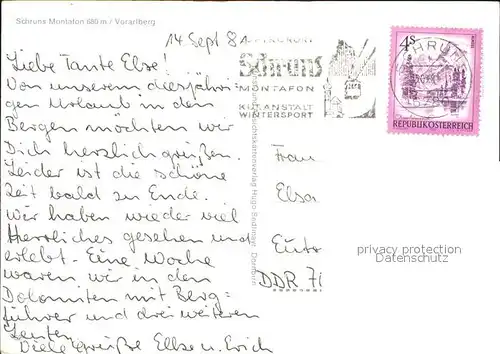 Schruns Montafon 680 m / Vorarlberg
14 Sept 81
Liebe Tante Else!
Von unserem diesjähri=
gen Urlaub in den
Bergen möchten wir
Dich herzlich grüßen.
Leider ist die schöne
Zeit bald zu Ende.
Wir haben wieder viel
Herrliches gesehen und
erlebt. Eine Woche
waren wir in den
Dolomiten mit Berg=
führer und drei weiteren
Leuten.
Viele Grüße Elke u. Erich
LUFTKURORT
Schruns
MONTAFON
KURANSTALT
WINTERSPORT
4S
SCHRUNS
REPUBLIK ÖSTERREICH
Frau
Elsa
Eutr
DDR 71
privacy protection
Datenschutz